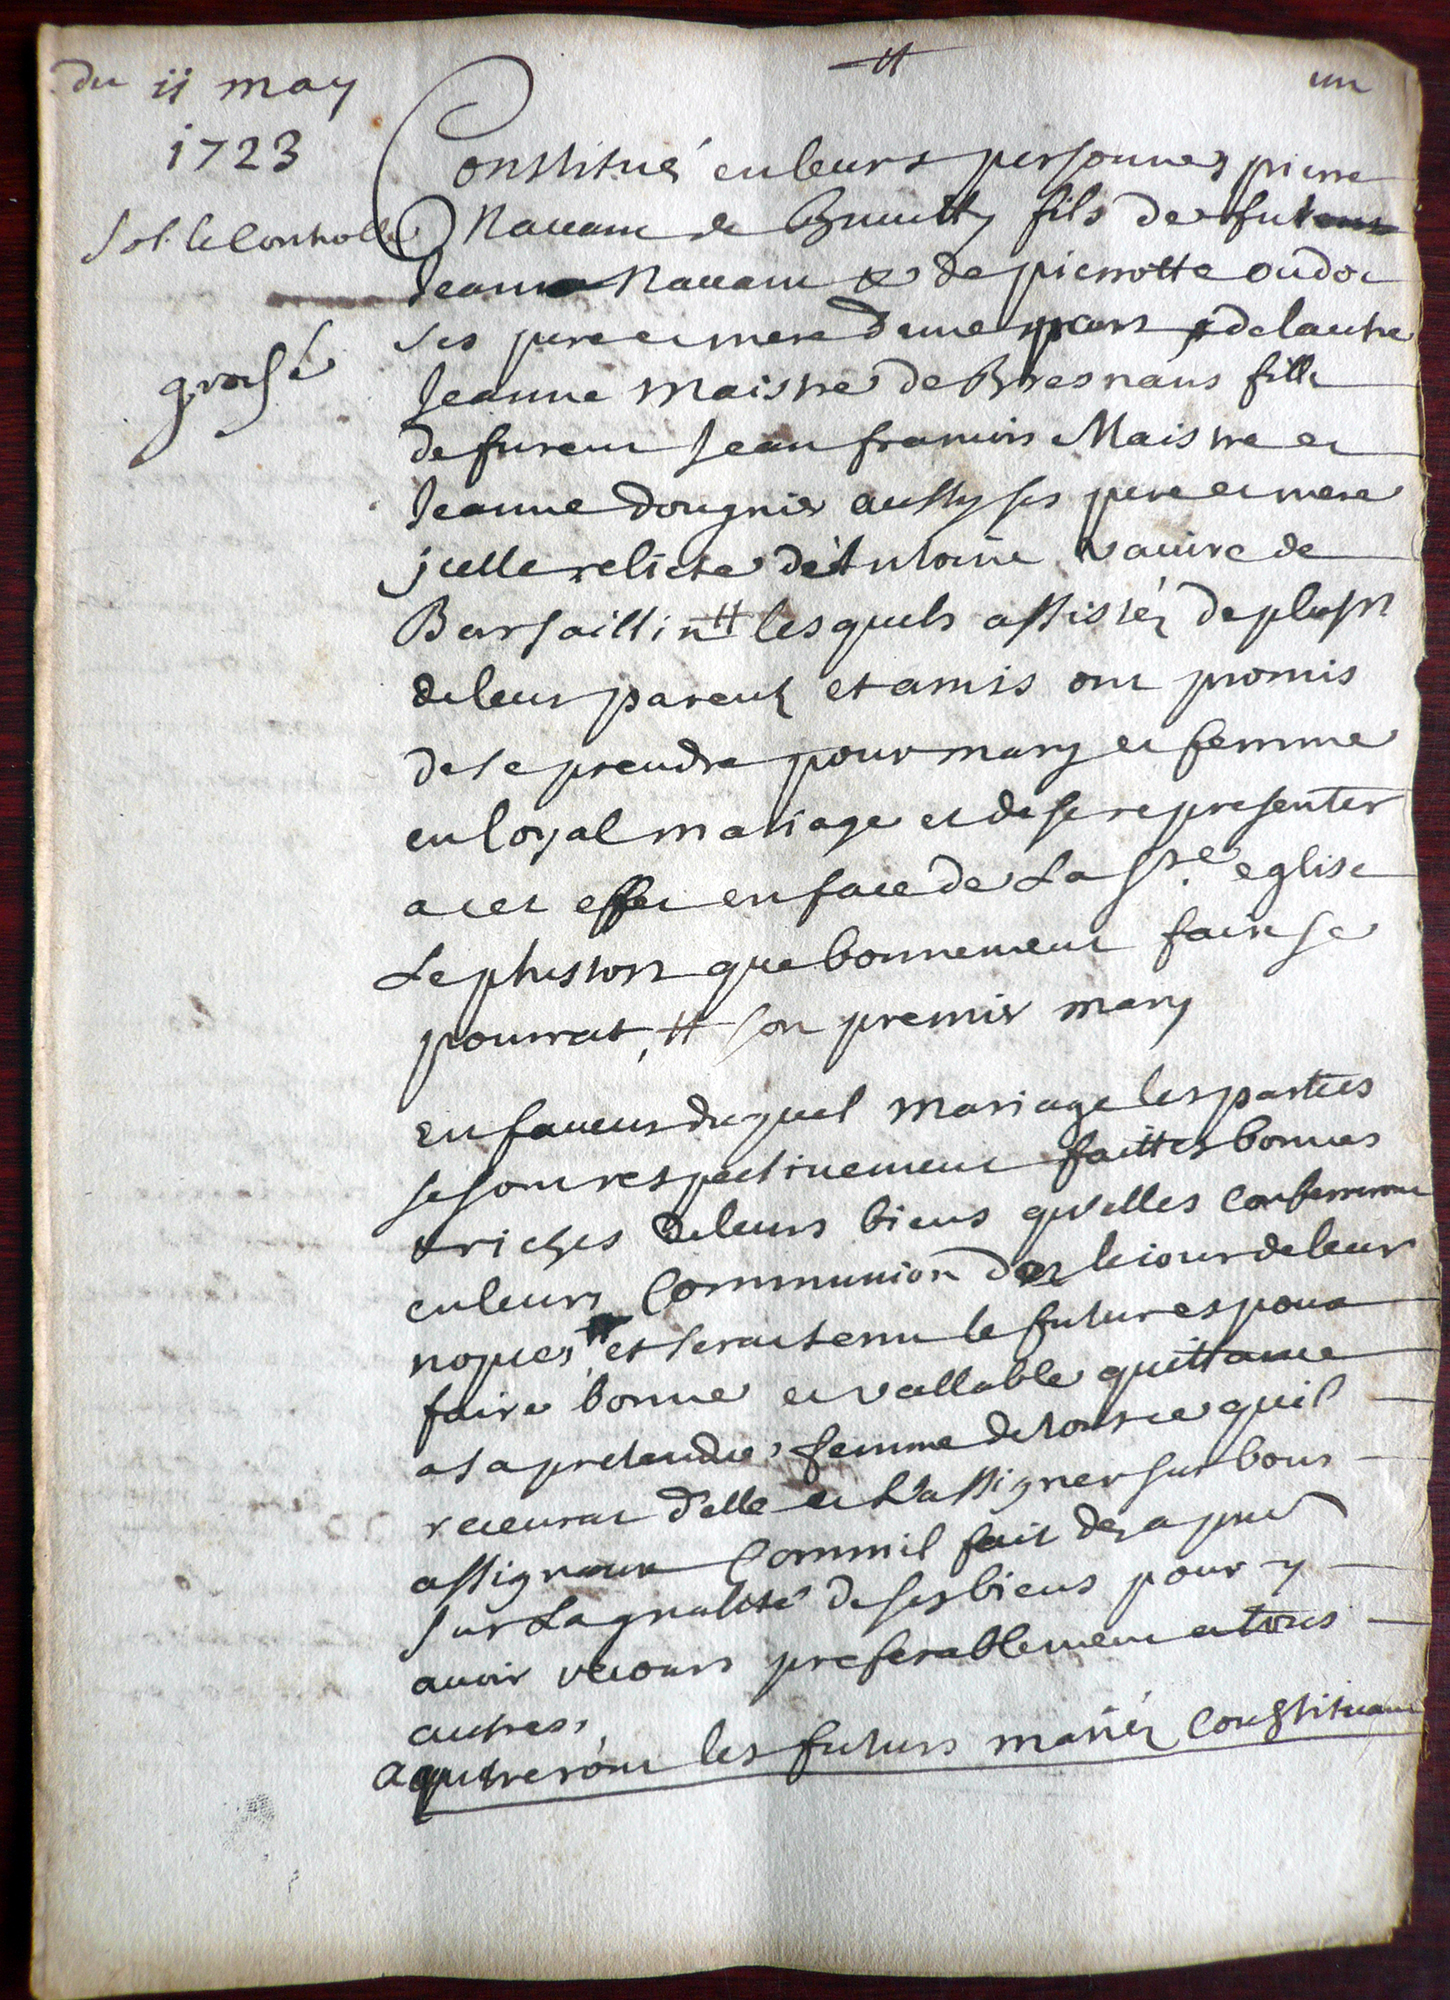 du 11 may
1723
sol. le Controlle
grossé
#
un
Constitués en leurs personnes pierre
Nauam de Bruilly fils de fut
Jean Nauam & de pierrotte oudot
ses pere et mere d'une part & de lautre
Jeanne Maistre de Bresnans fille
de furent Jean francois Maistre et
Jeanne dougnier aussy ses pere et mere
jcelle relicte de Antoine vauire de
Barsaillin # lesquels assistéz de plusrs
de leur parentz et amis ont promis
de se prendre pour mary et femme
en loyal mariage et de se representer
a cet effet en face de La Ste eglise
Le plustost que bonnement faire se
pourrat, # son premier mary
En faueur duquel mariage les parties
se sont respectiuement faittes bonnes
& riches de leurs biens qu'elles confereront
en leurs Communion dez le iour de leur
nopces, et serat tenu le futur espoux
faire bonne et vallable quittance
a sa pretendue femme de tout ce quil
receurat d'elle et L'assigner sur bons
assignaux Comm'il fait dez a put
sur La gnalité de ses biens pour y
auoir recours preferablement a tous
autres,
acquireront les futurs mariéz constituant